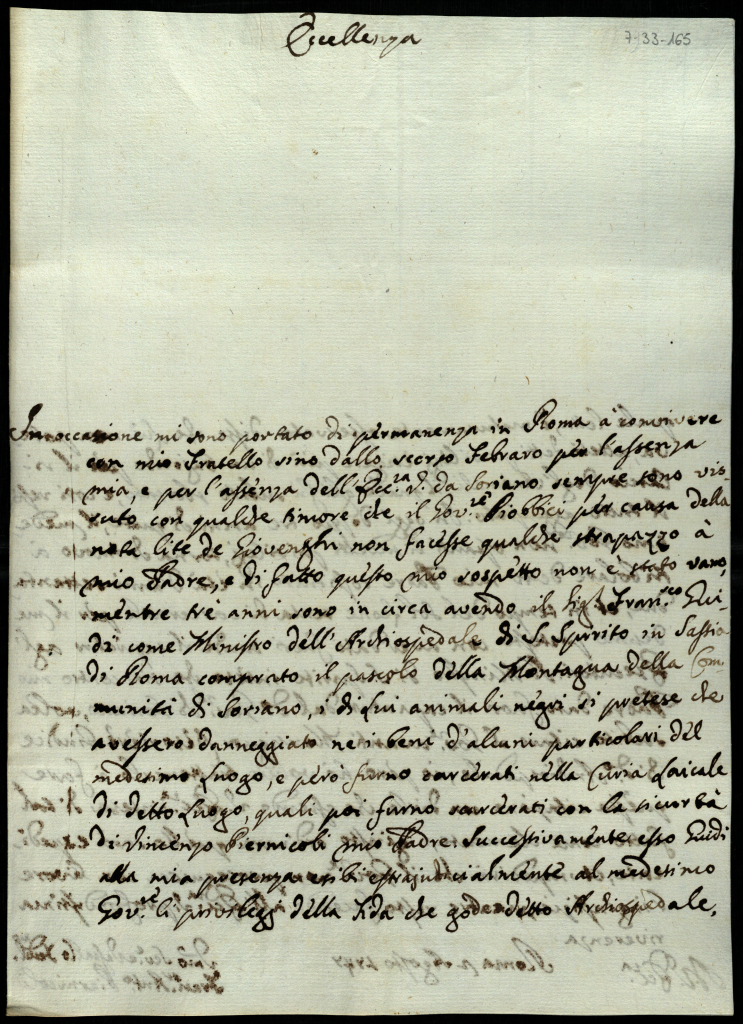 Eccellenza
7-33-165
In occasione mi sono portato di permanenza in Roma à convivere
con mio Fratello sino dallo scorso Febraro per l'assenza
mia, e per l'assenza dell'Ecc.za V. da Soriano sempre sono vis-
suto con qualche timore che il Gov.re Piobbici per causa della
nota lite de Giovenghi non facesse qualche strapazzo à
mio Padre, e di fatto questo mio sospetto non è stato vano,
mentre trè anni sono in circa avendo il Sig.r Fran.co Gui-
di come Ministro dell'Archiospedale di S. Spirito in Sassia
di Roma comprato il pascolo della Montagna della Com-
munità di Soriano, i di Lui animali negri si pretese che
avessero danneggiato ne i beni d'alcuni particolari del
medesimo Luogo, e però furno carcerati nella Curia Laicale
di detto Luogo, quali poi furno scarcerati con la sicurtà
di Vincenzo Piernicoli mio Padre. Successivamente esso Guidi
alla mia presenza esibì estrajudicialmente al medesimo
Gov.re li privileggi della fida che gode detto Archiospedale,